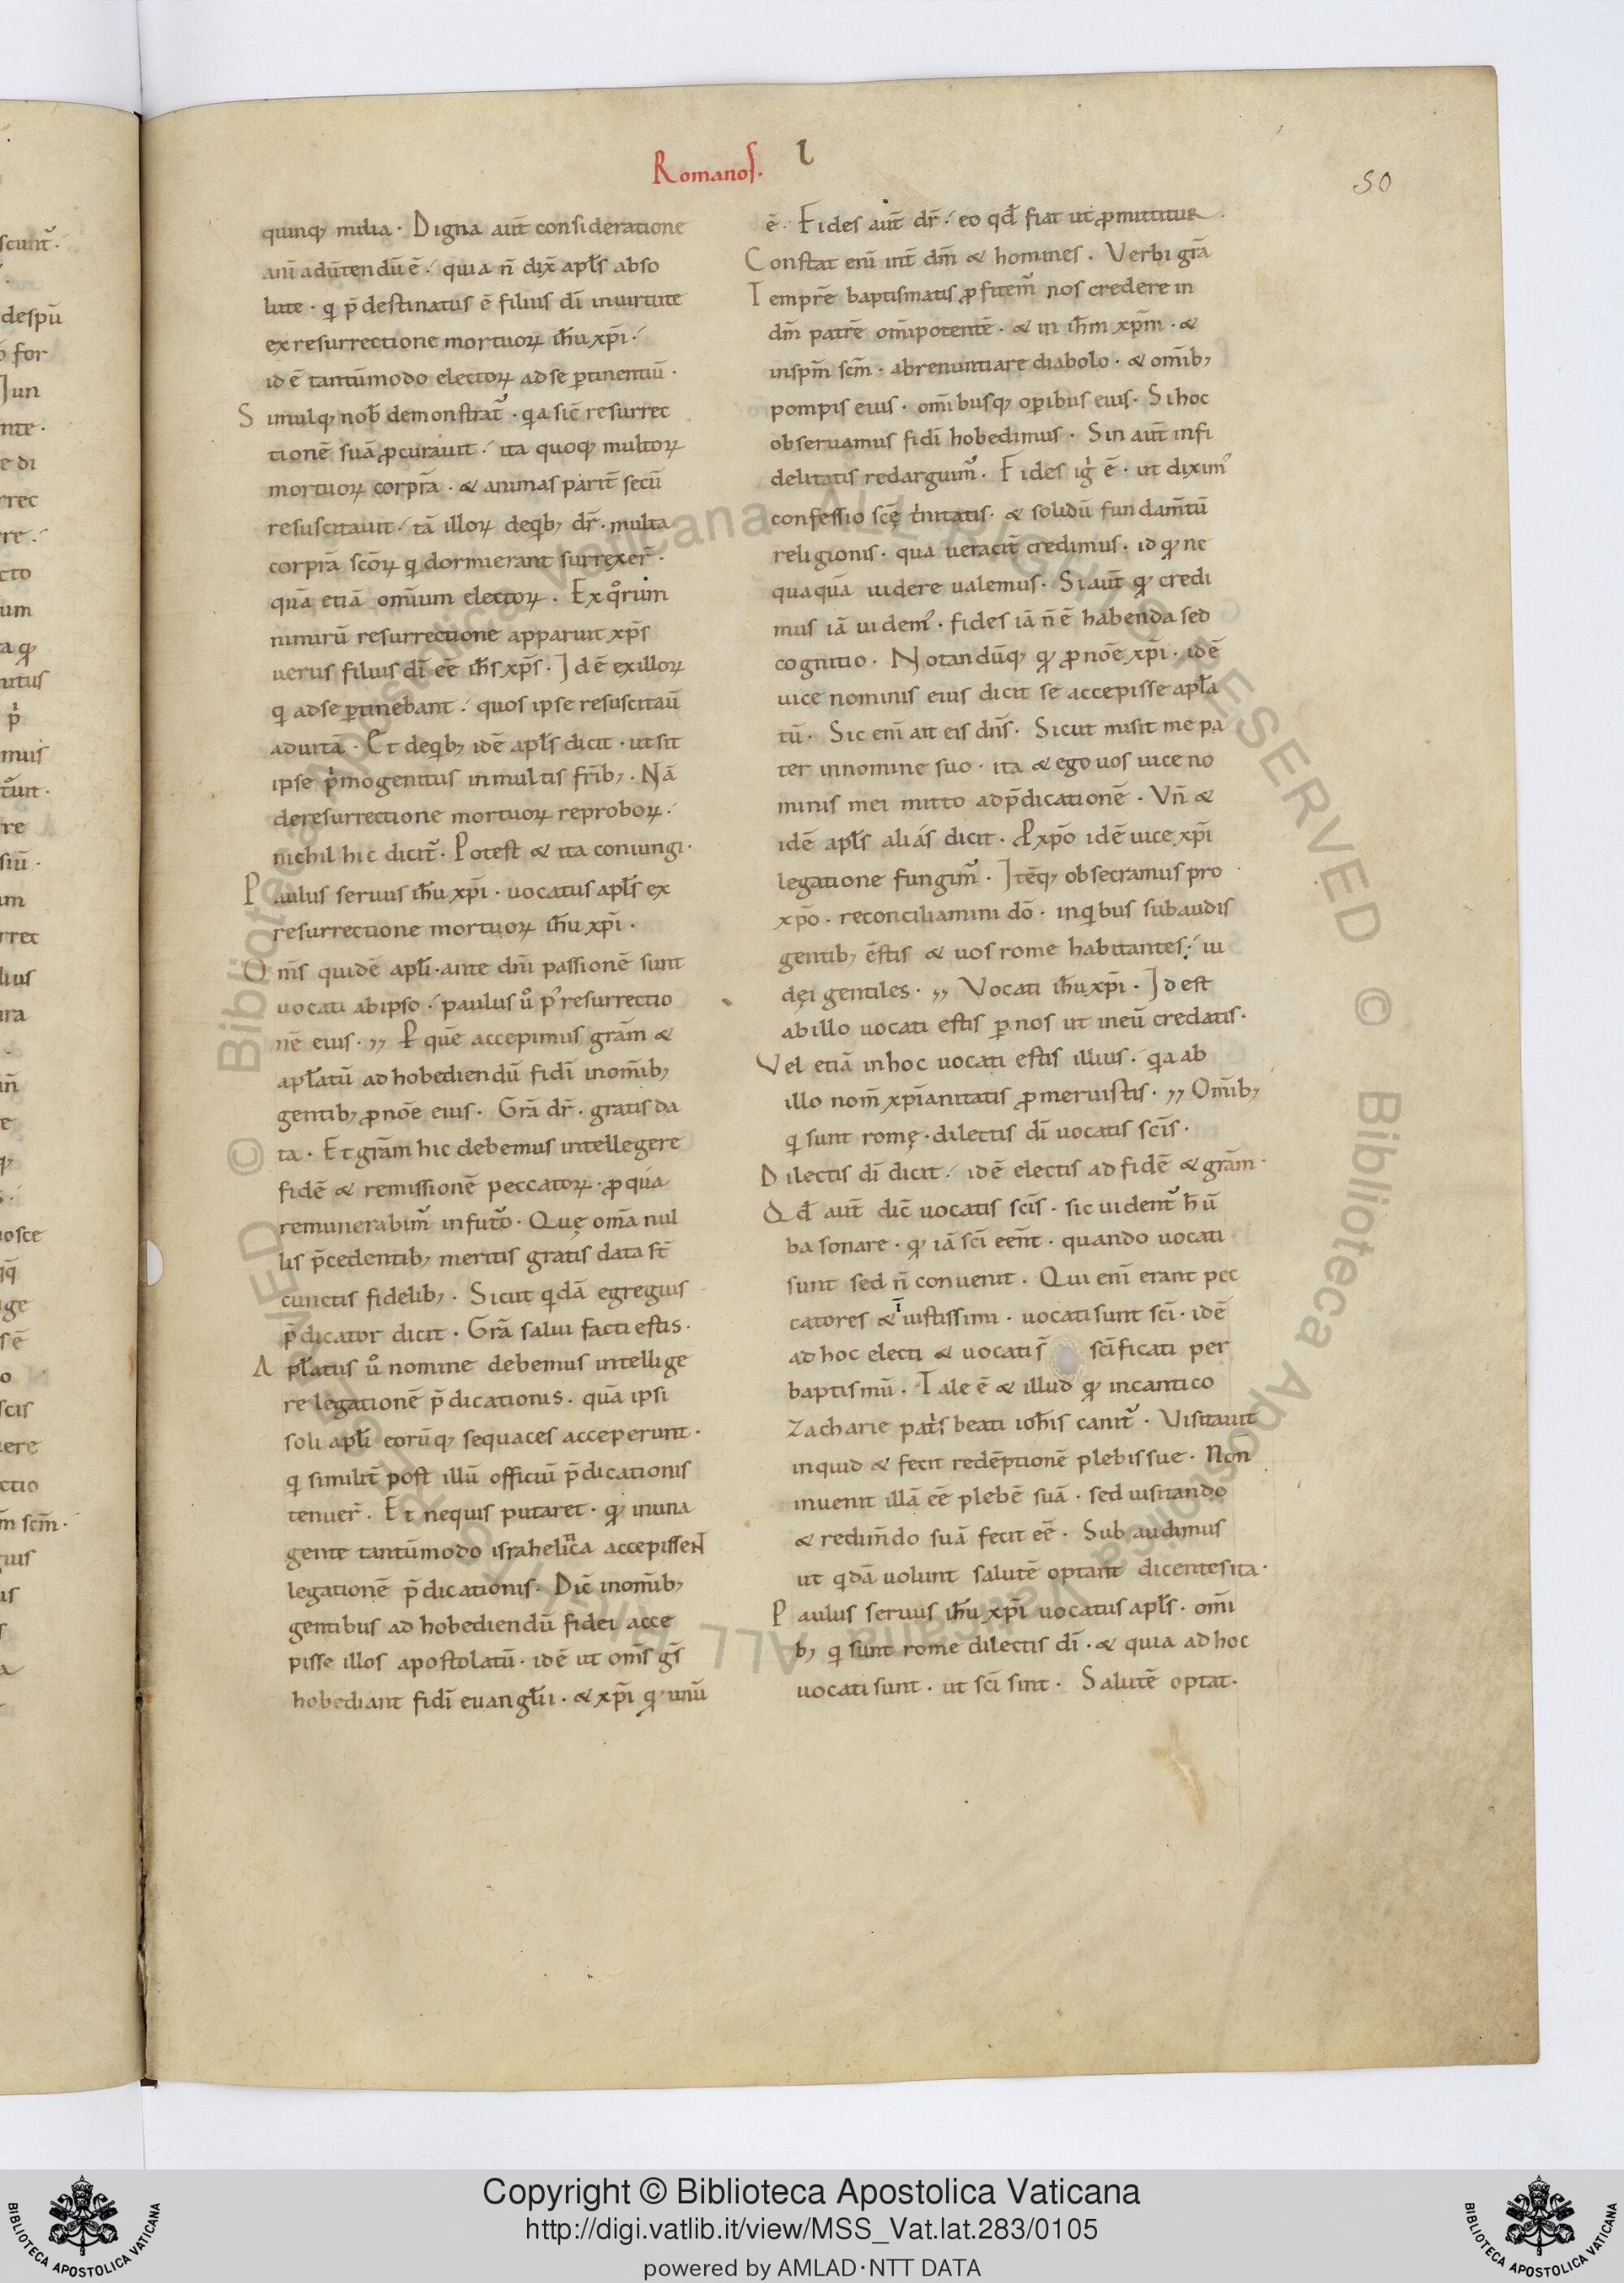 Romanos. I
50
quinq; milia. Digna aut̄ consideratione
ani aduītendū ē. quia n̄ dix̄ apl̄s abso
lute. q p̄destinatus ē filius dī inuirtute
ex resurrectione mortuoꝝ ih̄u xp̄i.
id ē tantūmodo electoꝝ adse ꝑtinentiū.
Simulq; nob̄ demonstrat᷑. qa sic̄ resurrec
tionē suā ꝓcurauit. ita quoq; multoꝝ
mortuoꝝ corpr̄a. & animas parit̄ secū
resuscitauit. tā illoꝝ deqb; dr̄. multa
corpr̄a sc̄oꝝ q dormierant surrexer̄.
quā etiā om̄ium electoꝝ. Ex qͦrum
nimirū resurrectione apparuit xp̄s
uerus filius dī eē ih̄s xp̄s. Id ē exilloꝝ
q adse ꝑtinebant. quos ipse resuscitaū
aduitā. Et deqb; idē apl̄s dicit. ut sit
ipse pͥmogenitus inmultis fr̄ib;. Nā
deresurrectione mortuoꝝ reproboꝝ.
nichil hic dicit᷑. Potest & ita coniungi.
Paulus seruus ih̄u xp̄i. uocatus apl̄s ex
resurrectione mortuoꝝ ih̄u xp̄i.
Om̄s quidē apl̄i. ante dn̄i passionē sunt
uocati abipso. paulus uͦ p᷒ resurrectio
nē eius. ,, Ꝑ quē accepimus grām &
apl̄atū ad hobediendū fidī inom̄ib;
gentib; ꝓ noē eius. Grā dr̄. gratis da
ta. Et grām hic debemus intellegere
fidē & remissionē peccatoꝝ. ꝓ qua
remunerabim᷒ infutͦo. Quę om̄a nul
lis p̄cedentib; meritis gratis data st̄
cunctis fidelib;. Sicut qdā egregius
p̄dicator dicit. Grā salui facti estis.
Apl̄atus uͦ nomine debemus intellige
re legationē p̄dicationis. quā ipsi
soli apl̄i eorūq; sequaces acceperunt.
q similit̄ post illū officiū p̄dicationis
tenuer̄. Et nequis putaret. qd inuna
gente tantūmodo israhelitica accepissent
legationē p̄dicationis. Dic̄ inom̄ib;
gentibus ad hobediendū fidei acce
pisse illos apostolatū. idē ut om̄s gs̄
hobediant fidī euangl̄ii. & xp̄i qd unū
ē. Fides aut̄ dr̄. eo qd̄ fiat ut ꝓmittitur.
Constat enī int̄ dm̄ & homines. Verbi grā
Tempr̄e baptismatis ꝓfitem᷒ nos credere in
dm̄ patrē om̄ipotentē. & in ih̄m xp̄m. &
inspm̄ scm̄. abrenuntiare diabolo. & om̄ib;
pompis eius. om̄ibusq; oꝑibus eius. Si hoc
obseruamus fidī hobedimus. Sin aut̄ infi
delitatis redarguim᷒. Fides igͥ ē. ut dixim᷒
confessio scę tͥnitatis. & solidū fundam̄tū
religionis. qua ueracit̄ credimus. id qd ne
quaquā uidere ualemus. Si aut̄ qd credi
mus iā uidem᷒. fides iā n̄ ē habenda sed
cognitio. Notandūq; qd ꝓ noē xp̄i. idē
uice nominis eius dicit se accepisse apl̄a
tū. Sic enī ait eis dn̄s. Sicut misit me pa
ter innomine suo. ita & ego uos uice no
minis mei mitto adp̄dicationē. Vn̄ &
idē apl̄s alias dicit. Ꝓ xp̄o idē uice xp̄i
legatione fungim᷒. Itēq; obsecramus pro
xp̄o. reconciliamini dō. inqibus subaudis
gentib; ēstis & uos rome habitantes. iu
dęi gentiles. ,, Vocati ih̄u xp̄i. Id est
abillo uocati estis ꝑ nos ut ineū credatis.
Vel etiā inhoc uocati estis illius. qa ab
illo nom̄ xp̄ianitatis ꝓmeruistis. ,, Om̄ib;
q sunt romę. dilectis dī uocatis scīs.
Dilectis dī dicit. idē electis ad fidē & grām.
Qd̄ aut̄ dic̄ uocatis scīs. sic uident᷑ h̄ ū
ba sonare. qd iā scī eēnt. quando uocati
sunt sed n̄ conuenit. Qui enī erant pec
catores & iniustissimi. uocati sunt scī. idē
ad hoc electi & uocati s̄ scīficati per
baptismū. Tale ē & illud qd incantico
Zacharie patͥs beati ioh̄is canit᷑. Visitauit
inquid & fecit redēptionē plebis sue. Non
inuenit illā eē plebē suā. sed uisitando
& redim̄do suā fecit eē. Sub audimus
ut qdā uolunt salutē optant dicentes ita.
Paulus seruus ih̄u xp̄i uocatus apl̄s. om̄i
b; q sunt rome dilectis dī. & quia ad hoc
uocati sunt. ut scī sint. Salutē optat.
Copyright © Biblioteca Apostolica Vaticana
http://digi.vatlib.it/view/MSS_Vat.lat.283/0105
powered by AMLAD·NTT DATA